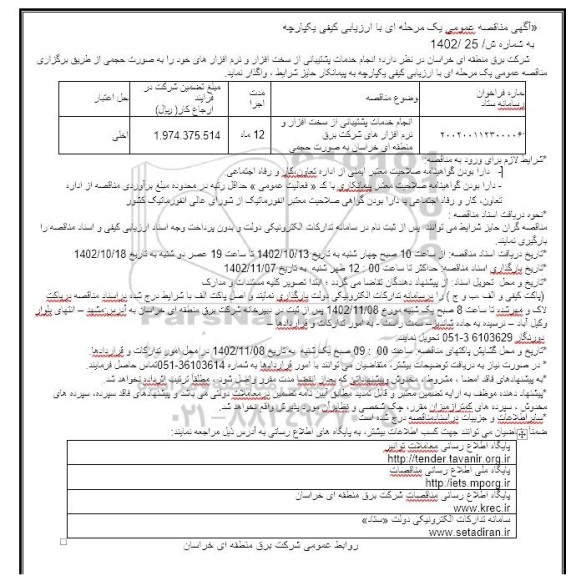 «آگهی مناقصه عمومی یک مرحله ای با ارزیابی کیفی یکپارچه
به شماره ش/ 25 /1402
شرکت برق منطقه ای خراسان در نظر دارد؛ انجام خدمات پشتیبانی از سخت افزار و نرم افزار های خود را به صورت حجمی از طریق برگزاری
مناقصه عمومی یک مرحله ای با ارزیابی کیفی یکپارچه به پیمانکار حایز شرایط ، واگذار نماید.
ماره فراخوان رسامانه ستاد | موضوع مناقصه | مدت اجرا | مبلغ تضمین شرکت در فرآیند ارجاع کار( ریال) | حل اعتبار
۲۰۰۲۰۰۱۱۲۳۰۰۰۰۶۰ | انجام خدمات پشتیبانی از سخت افزار و نرم افزار های شرکت برق منطقه ای خراسان به صورت حجمی | 12 ماه | 1.974.375.514 | اخلی
*شرایط لازم برای ورود به مناقصه:
- دارا بودن گواهینامه صلاحیت معتبر ایمنی از اداره تعاون،کار و رفاه اجتماعی
- دارا بودن گواهینامه صلاحیت معتبر پیمانکاری با کد « فعالیت عمومی » حداقل رتبه در محدوده مبلغ برآوردی مناقصه از اداره
تعاون، کار و رفاه اجتماعی یا دارا بودن گواهی صلاحیت معتبر انفورماتیک از شورای عالی انفورماتیک کشور
*نحوه دریافت اسناد مناقصه :
مناقصه گران حایز شرایط می توانند پس از ثبت نام در سامانه تدارکات الکترونیکی دولت و بدون پرداخت وجه اسناد ارزیابی کیفی و اسناد مناقصه را
بارگیری نمایند.
*تاریخ دریافت اسناد مناقصه: از ساعت 10 صبح چهار شنبه به تاریخ 1402/10/13 تا ساعت 19 عصر دو شنبه به تاریخ 1402/10/18
*تاریخ بارگذاری اسناد مناقصه: حداکثر تا ساعت 00 : 12 ظهر شنبه به تاریخ 1402/11/07
*تاریخ و محل تحویل اسناد: از پیشنهاد دهندگان تقاضا می گردد ؛ ابتدا تصویر کلیه مستندات و مدارک
(پاکت کیفی و الف ب و ج ) را در سامانه تدارکات الکترونیکی دولت بارگذاری نمایند و اصل پاکت الف با شرایط درج شده در اسناد مناقصه دریاکت
لاک و مهرشده تا ساعت 8 صبح یک شنبه مورخ 1402/11/08 پس از ثبت در دبیرخانه شرکت برق منطقه ای خراسان به آدرس مشهد – انتهای بلوار
وکیل آباد – نرسیده به جاده شاندیز – سمت راست - به امور تدارکات و قراردادها –
دورنگار 6103629 3-051 تحویل نمایند.
*تاریخ و محل گشایش پاکتهای مناقصه: ساعت 00 : 09 صبح یک شنبه به تاریخ 1402/11/08 در محل امور تدارکات و قراردادها
* در صورت نیاز به دریافت توضیحات بیشتر، متقاضیان می توانند با امور قراردادها به شماره 36103614-051تماس حاصل فرمایند.
*به پیشنهادهای فاقد امضا ، مشروط ، مخدوش و پیشنهاداتی که بعداز انقضا مدت مقرر واصل شود ، مطلقا ترتیب اثر داده نخواهد شد.
*پیشنهاد دهنده موظف به ارایه تضمین معتبر و قابل تمدید مطابق آیین نامه تضمین در معاملات دولتی می باشد و پیشنهادهای فاقد سپرده، سپرده های
مخدوش ، سپرده های کمتر از میزان مقرر، چک شخصی و نظایر آن مورد پذیرش واقع نخواهد شد.
*سایر اطلاعات و جزییات در اسناد مناقصه درج شده است.
ضمنا متقاضیان می توانند جهت کسب اطلاعات بیشتر، به پایگاه های اطلاع رسانی به آدرس ذیل مراجعه نمایند:
پایگاه اطلاع رسانی معاملات توانیر
http://tender.tavanir.org.ir
پایگاه ملی اطلاع رسانی مناقصات
http:/iets.mporg.ir
پایگاه اطلاع رسانی مناقصات شرکت برق منطقه ای خراسان
www.krec.ir
سامانه تدارکات الکترونیکی دولت «ستاد»
www.setadiran.ir
روابط عمومی شرکت برق منطقه ای خراسان